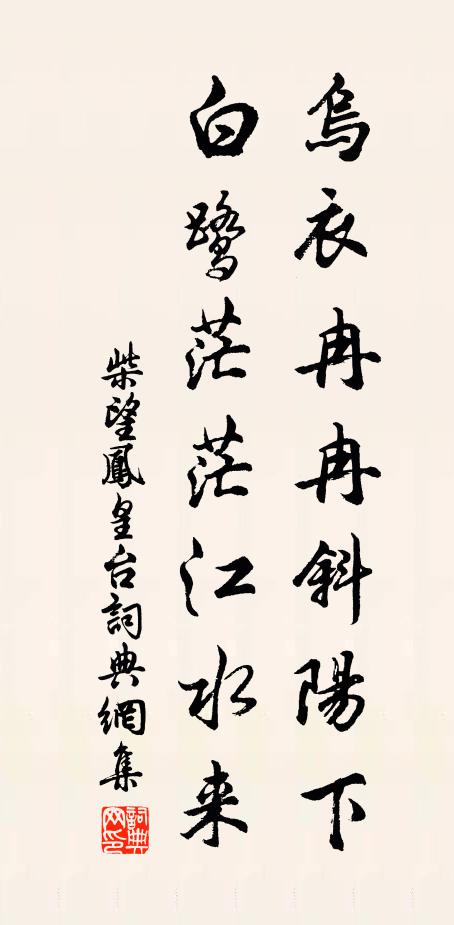 烏衣冉冉斜陽下
白鷺茫茫江水来
柴望鳳皇台詞典網集
詞典
网印